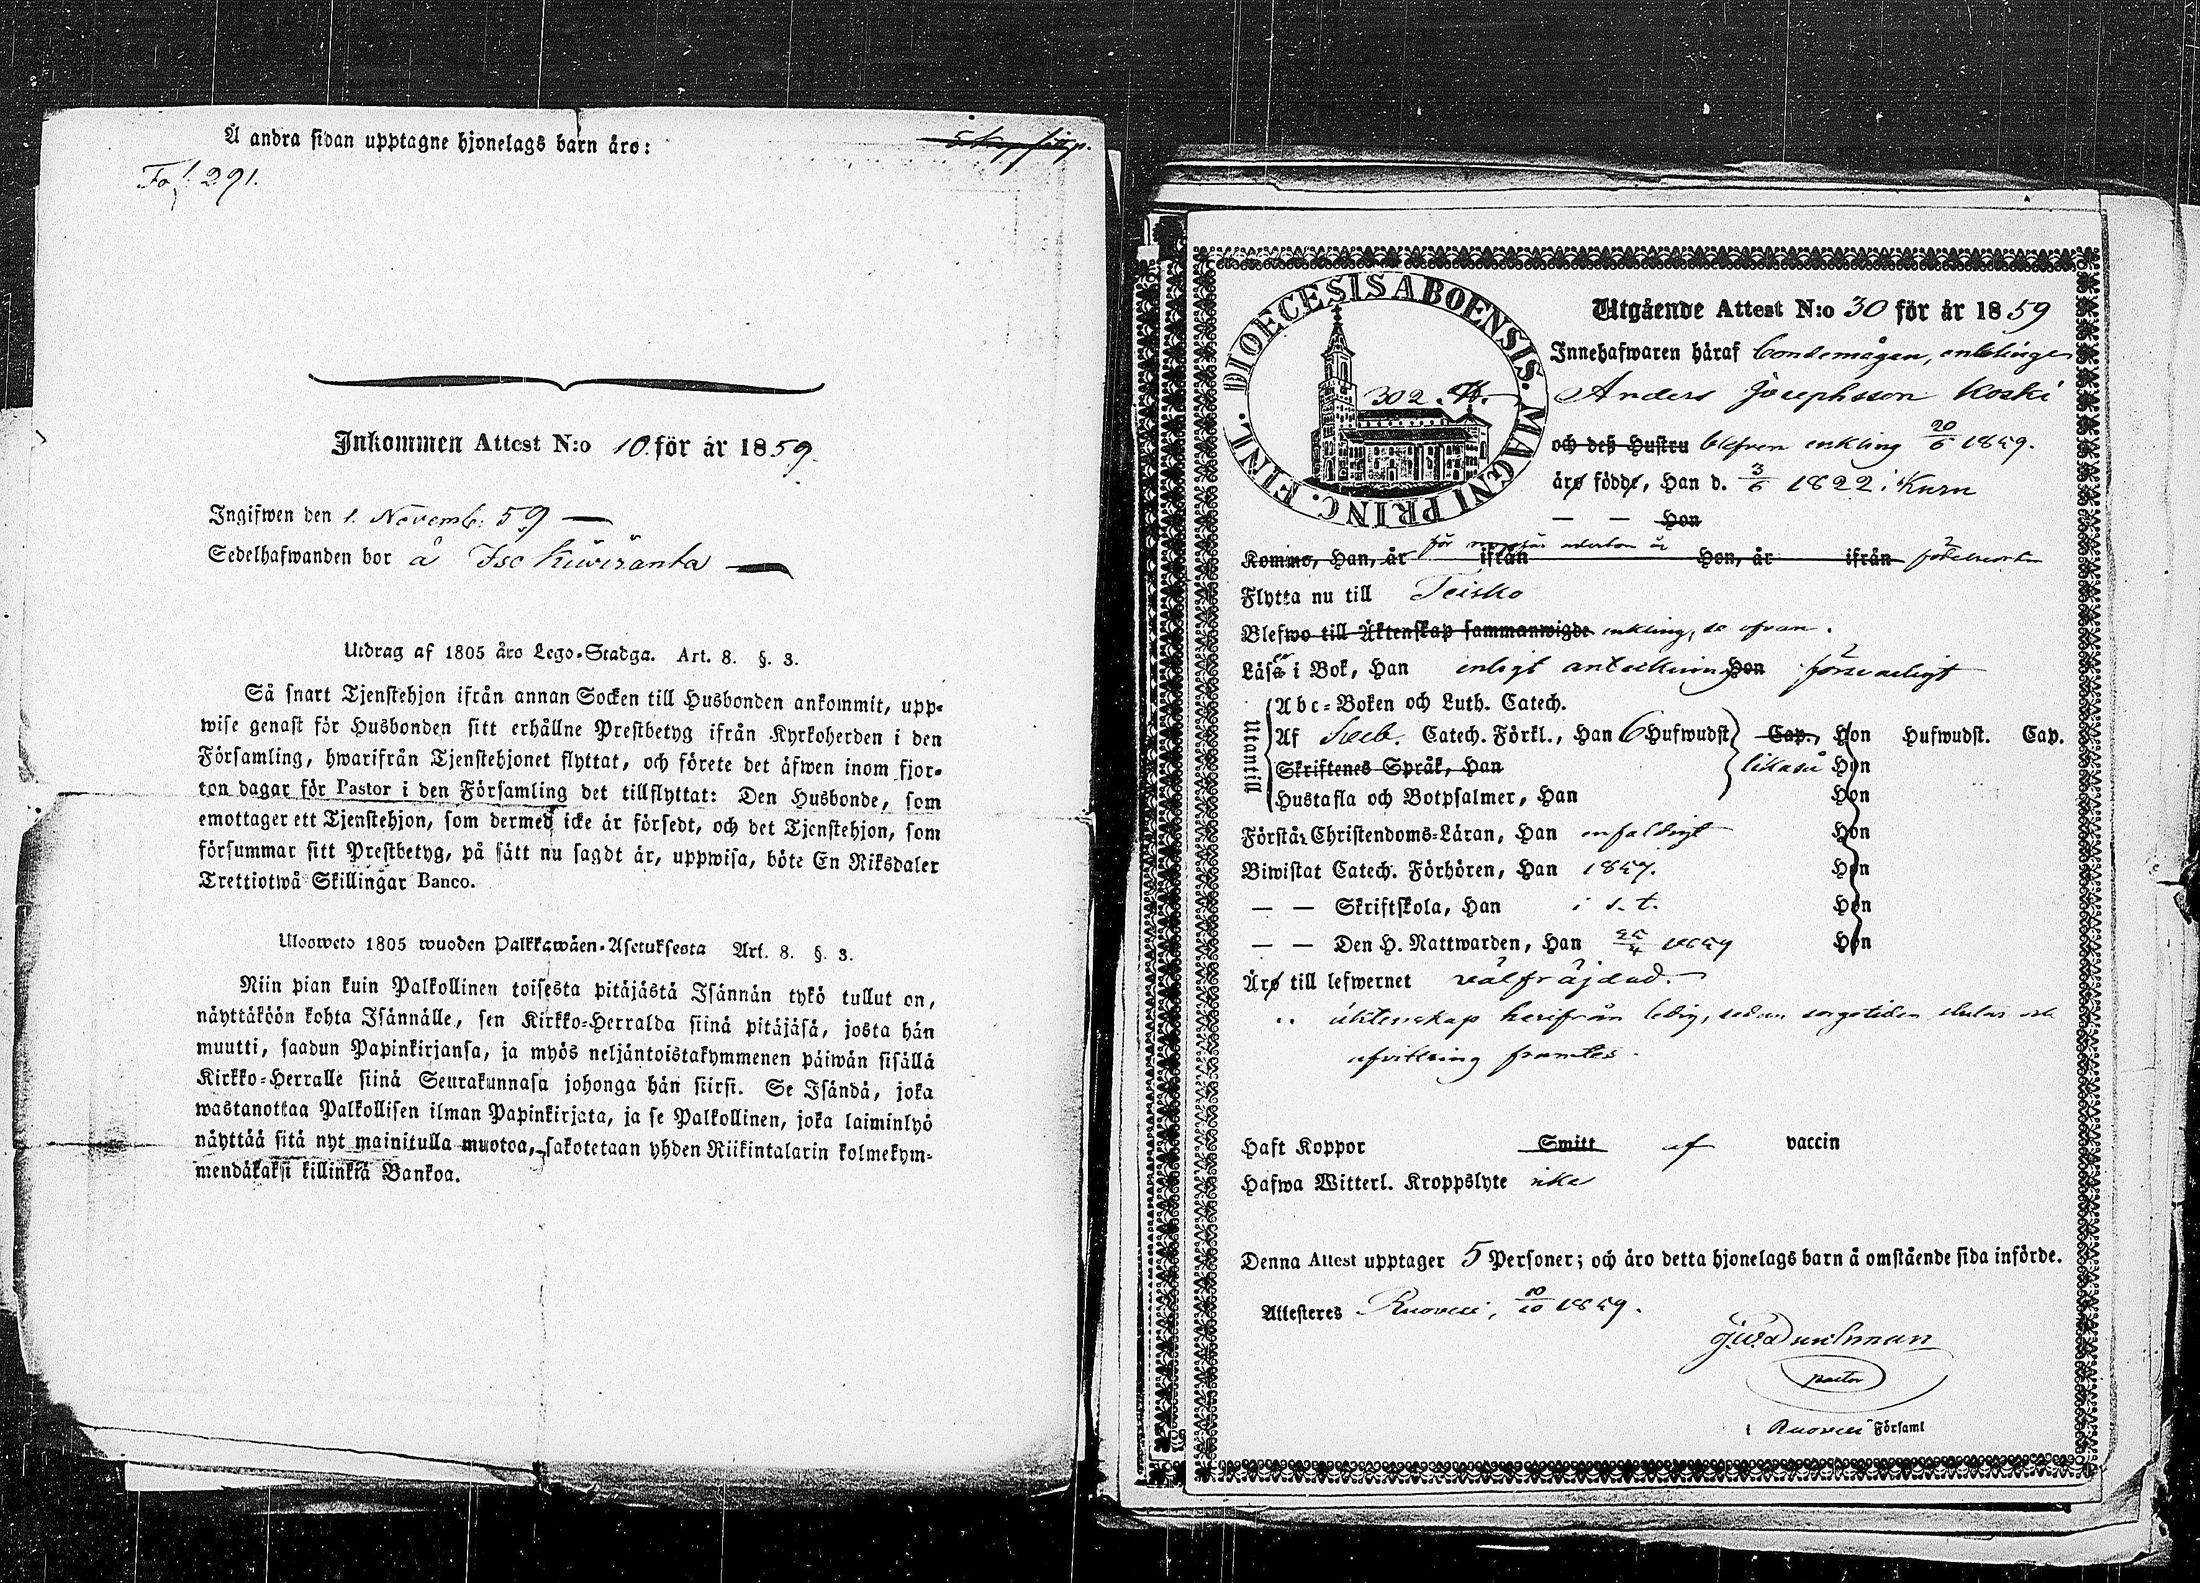 Å andra sidan upptagne hjonelags barn äro:
Fol. 291.
Inkommen Attest N:o 10. för år 1859.
Ingifwen den 1. Novemb: 59 —
Sedelhafwanden bor å Iso Kuviranta —
Utdrag af 1805 åro Lego-Stadga. Art. 8. §. 3.
Så snart Tjenstehjon ifrån annan Socken till Husbonden ankommit, upp-
wise genast för Husbonden sitt erhållne Prestbetyg ifrån Kyrkoherden i den
Församling, hwarifrån Tjenstehjonet flyttat, och förete det äfwen inom fjor-
ton dagar för Pastor i den Församling det tillflyttat: Den Husbonde, som
emottager ett Tjenstehjon, som dermed icke är försedt, och det Tjenstehjon, som
försummar sitt Prestbetyg, på sätt nu sagdt är, uppwisa, böte En Riksdaler
Trettiotwå Skillingar Banco.
Ulosweto 1805 wuoden Palkkawäen-Asetuksesta Art. 8. §. 3.
Niin pian kuin Palkollinen toisesta pitäjästä Isännän tykö tullut on,
näyttäköön kohta Isännälle, sen Kirkko-Herralda siinä pitäjäsä, josta hän
muutti, saadun Papinkirjansa, ja myös neljäntoistakymmenen päiwän sisällä
Kirkko-Herralle siinä Seurakunnasa johonga hän siirsi. Se Isändä, joka
wastanottaa Palkollisen ilman Papinkirjata, ja se Palkollinen, joka laiminlyö
näyttää sitä nyt mainitulla muotoa, sakotetaan yhden Riikintalarin kolmekym-
mendäkaksi killinkiä Bankoa.
DIOECESIS ABOENSIS. MAGNI PRINC. FINL.
302.
Utgående Attest N:o 30 för år 1859
Innehafwaren häraf Bondemågen, enklingen
Anders Josephsson Koski
och deß Hustru blefven enkling 20/6 1859.
äro födde, Han d. 3/6 1822 i Kuru
— — Hon
Kommo, Han, år för ifrån Hon, år ifrån födelseorten
Flytta nu till Teisko
Blefwo till Äktenskap sammanwigde enkling, se ofvan.
Läsa i Bok, Han enligt anteckning Hon försvarligt
Utantill
Abc-Boken och Luth. Catech.
Af Sveb. Catech. Förkl., Han 6 Hufwudst. Cap., Hon Hufwudst. Cap.
Skriftenes Språk, Han likaså Hon
Hustafla och Botpsalmer, Han Hon
Förstår Christendoms-Läran, Han enfaldigt Hon
Biwistat Catech. Förhören, Han 1857. Hon
— — Skriftskola, Han i s. t. Hon
— — Den H. Nattwarden, Han 25/4 1859 Hon
Äro till lefwernet välfräjdad.
„ äktenskap härifrån ledig, sedan sorgetiden slutas och
afvittring framtes.
Haft Koppor Smitt af vaccin
Hafwa Witterl. Kroppslyte icke
Denna Attest upptager 5 Personer; och äro detta hjonelags barn å omstående sida införde.
Attesteres Ruovesi, 10/10 1859.
pastor
i Ruovesi Församl